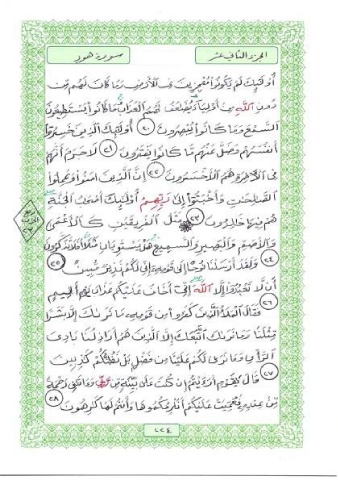 الجزء الثاني عشر
سورة هود
أولئك لم يكونوا معجزين في الأرض وما كان لهم من
دون الله من أولياء يضاعف لهم العذاب ما كانوا يستطيعون
السمع وما كانوا يبصرون ٢٠ أولئك الذين خسروا
أنفسهم وضل عنهم ما كانوا يفترون ٢١ لا جرم أنهم
في الآخرة هم الأخسرون ٢٢ إن الذين آمنوا وعملوا
الصالحات وأخبتوا إلى ربهم أولئك أصحاب الجنة
هم فيها خالدون ٢٣ مثل الفريقين كالأعمى
والأصم والبصير والسميع هل يستويان مثلا أفلا تذكرون
٢٤ ولقد أرسلنا نوحا إلى قومه إني لكم نذير مبين ٢٥
أن لا تعبدوا إلا الله إني أخاف عليكم عذاب يوم أليم
٢٦ فقال الملأ الذين كفروا من قومه ما نراك إلا بشرا
مثلنا وما نراك اتبعك إلا الذين هم أراذلنا بادي
الرأي وما نرى لكم علينا من فضل بل نظنكم كاذبين
٢٧ قال يا قوم أرأيتم إن كنت على بينة من ربي وآتاني رحمة
من عنده فعميت عليكم أنلزمكموها وأنتم لها كارهون ٢٨
٢٢٤